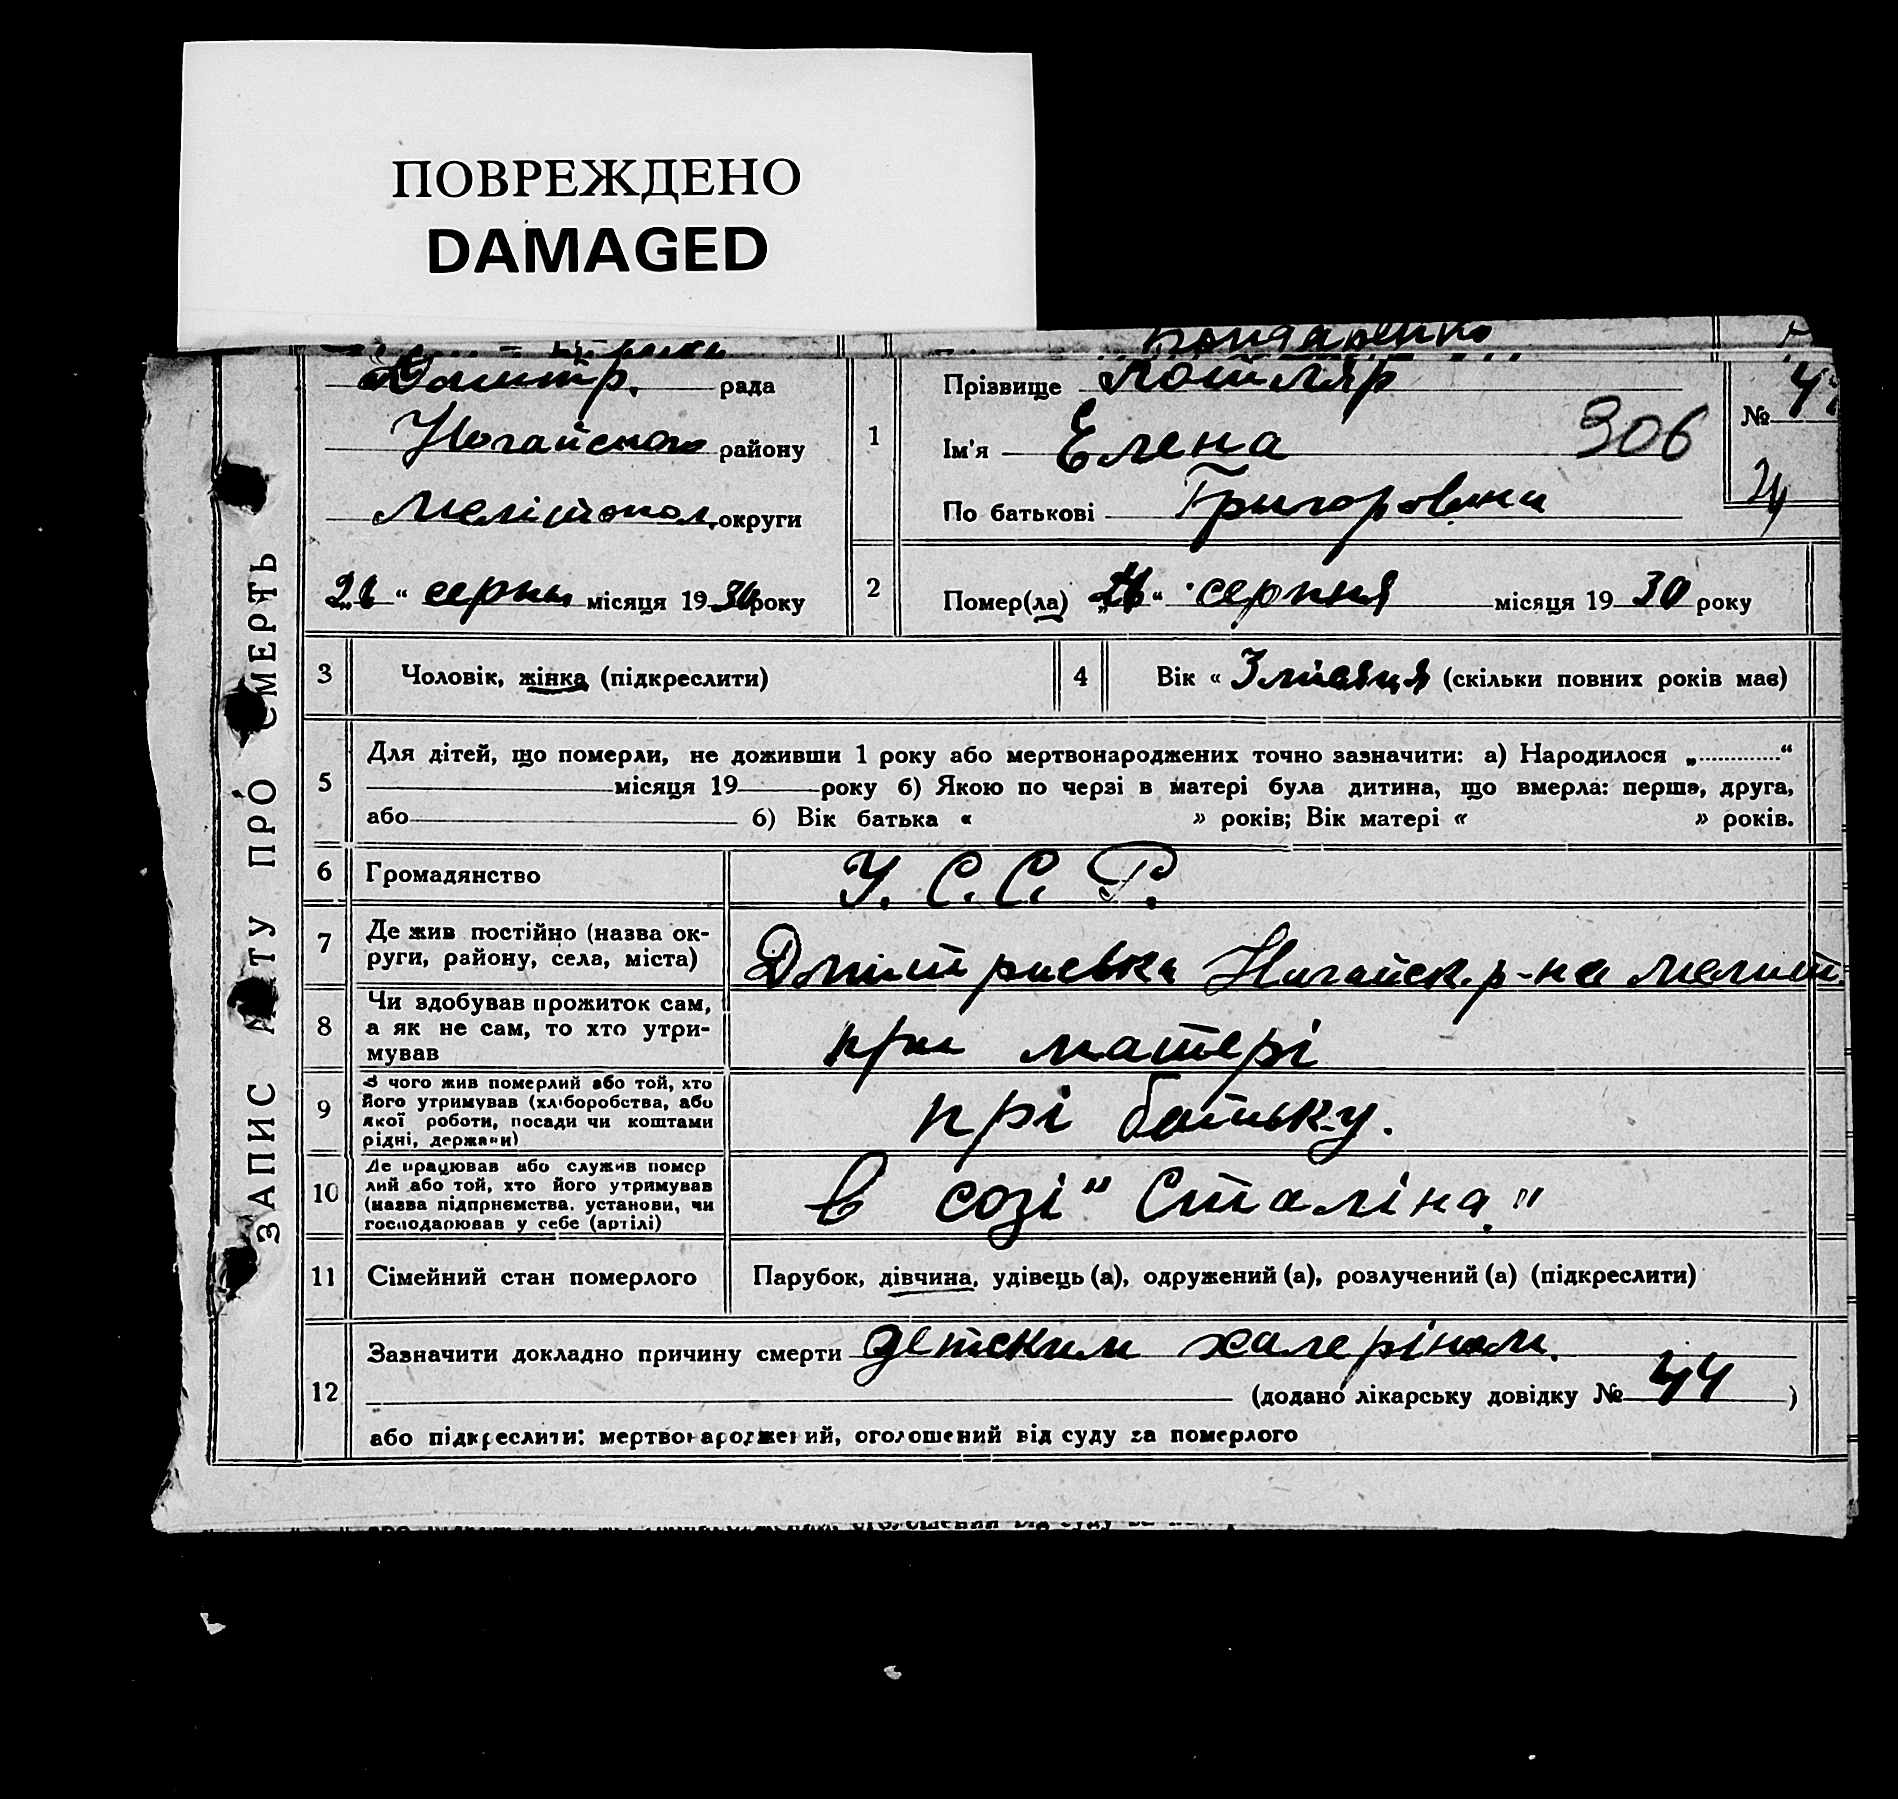 ПОВРЕЖДЕНО
DAMAGED
Бондаренко
Дмитр. рада
Ногайского району
Мелітопол. округи
„26“ серпня місяця 1930 року
ЗАПИС АКТУ ПРО СМЕРТЬ
1
Прізвище
Ім'я Елена 306
По батькові Григоровина
№ 44
2
Помер(ла) „ “ серпня місяця 19 30 року
3 Чоловік, жінка (підкреслити)
4 Вік « 3 місяця (скільки повних років має)
5
Для дітей, що померли, не доживши 1 року або мертвонароджених точно зазначити: а) Народилося „ “
місяця 19 року б) Якою по черзі в матері була дитина, що вмерла: перша, друга,
або б) Вік батька « » років; Вік матері « » років.
6 Громадянство У. С. С. Р.
7 Де жив постійно (назва ок-
руги, району, села, міста) Дмитриевка Ногайск. р-на Мелит.
8 Чи здобував прожиток сам,
а як не сам, то хто утри-
мував при матері
9 З чого жив померлий або той, хто
його утримував (хліборобства, або
якої роботи, посади чи коштами
рідні, держави) прі батьку.
10 Де працював або служив помер
лий або той, хто його утримував
(назва підприємства, установи, чи
господарював у себе (артілі) в созі "Сталіна"
11 Сімейний стан померлого Парубок, дівчина, удівець (а), одружений (а), розлучений (а) (підкреслити)
12
Зазначити докладно причину смерти детским халеріном.
(додано лікарську довідку № 44 )
або підкреслити: мертвонароджений, оголошений від суду за померлого